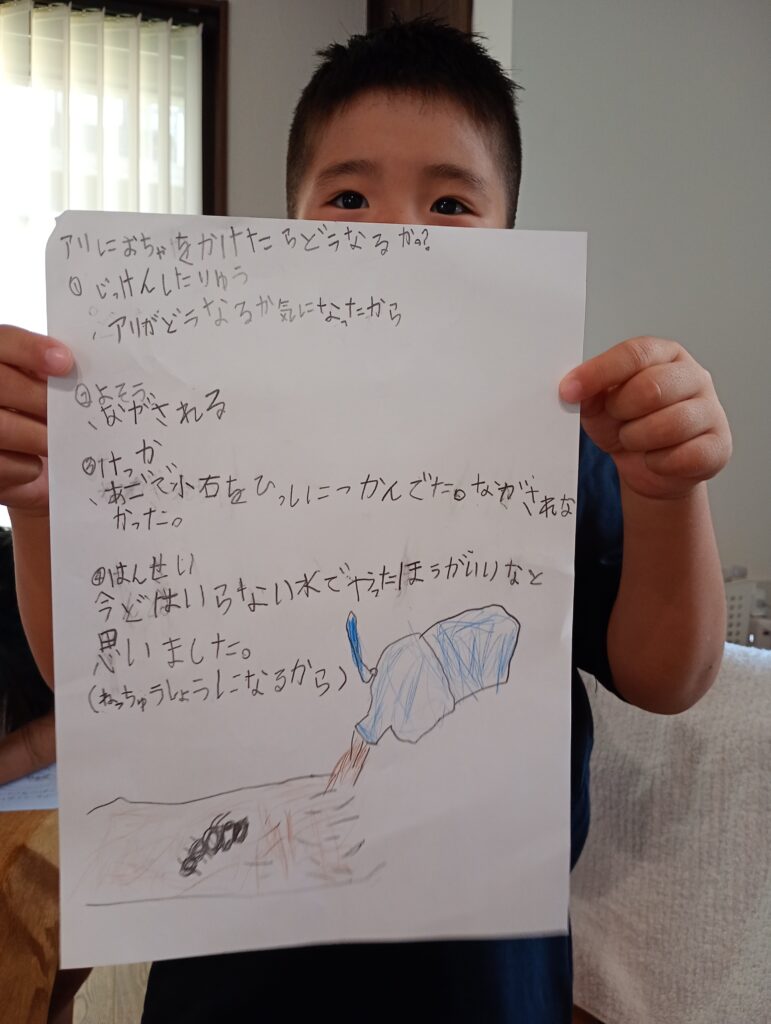 アリにおちゃをかけたらどうなるかの?
① じっけんしたりゆう
、アリがどうなるか気になったから
②よそう
、ながされる
③けっか
、あごで小石をひっしにつかんでた。ながされな
かった。
④はんせい
今どはいらない水でやったほうがいいなと
思いました。
(ねっちゅうしょうになるから)